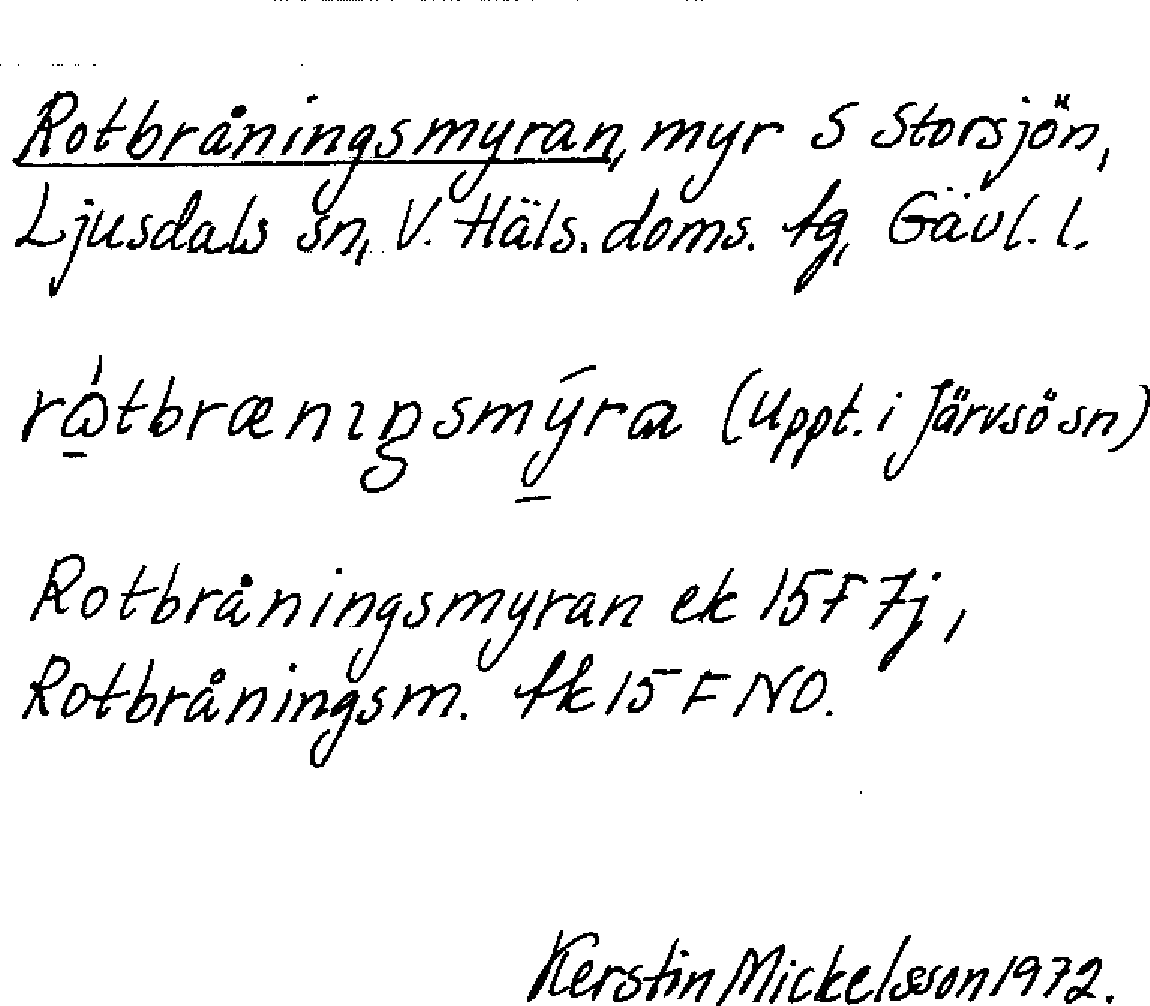 Rotbråningsmyran, myr S Storsjön,
Ljusdals sn, V. Häls. doms. tg, Gävl. l.
rɷ̲́tbrænıŋsmý̲ra (Uppt. i Järvsö sn)
Rotbråningsmyran ek 15F 7j,
Rotbråningsm. tk 15 F NO.
Kerstin Mickelsson 1972.